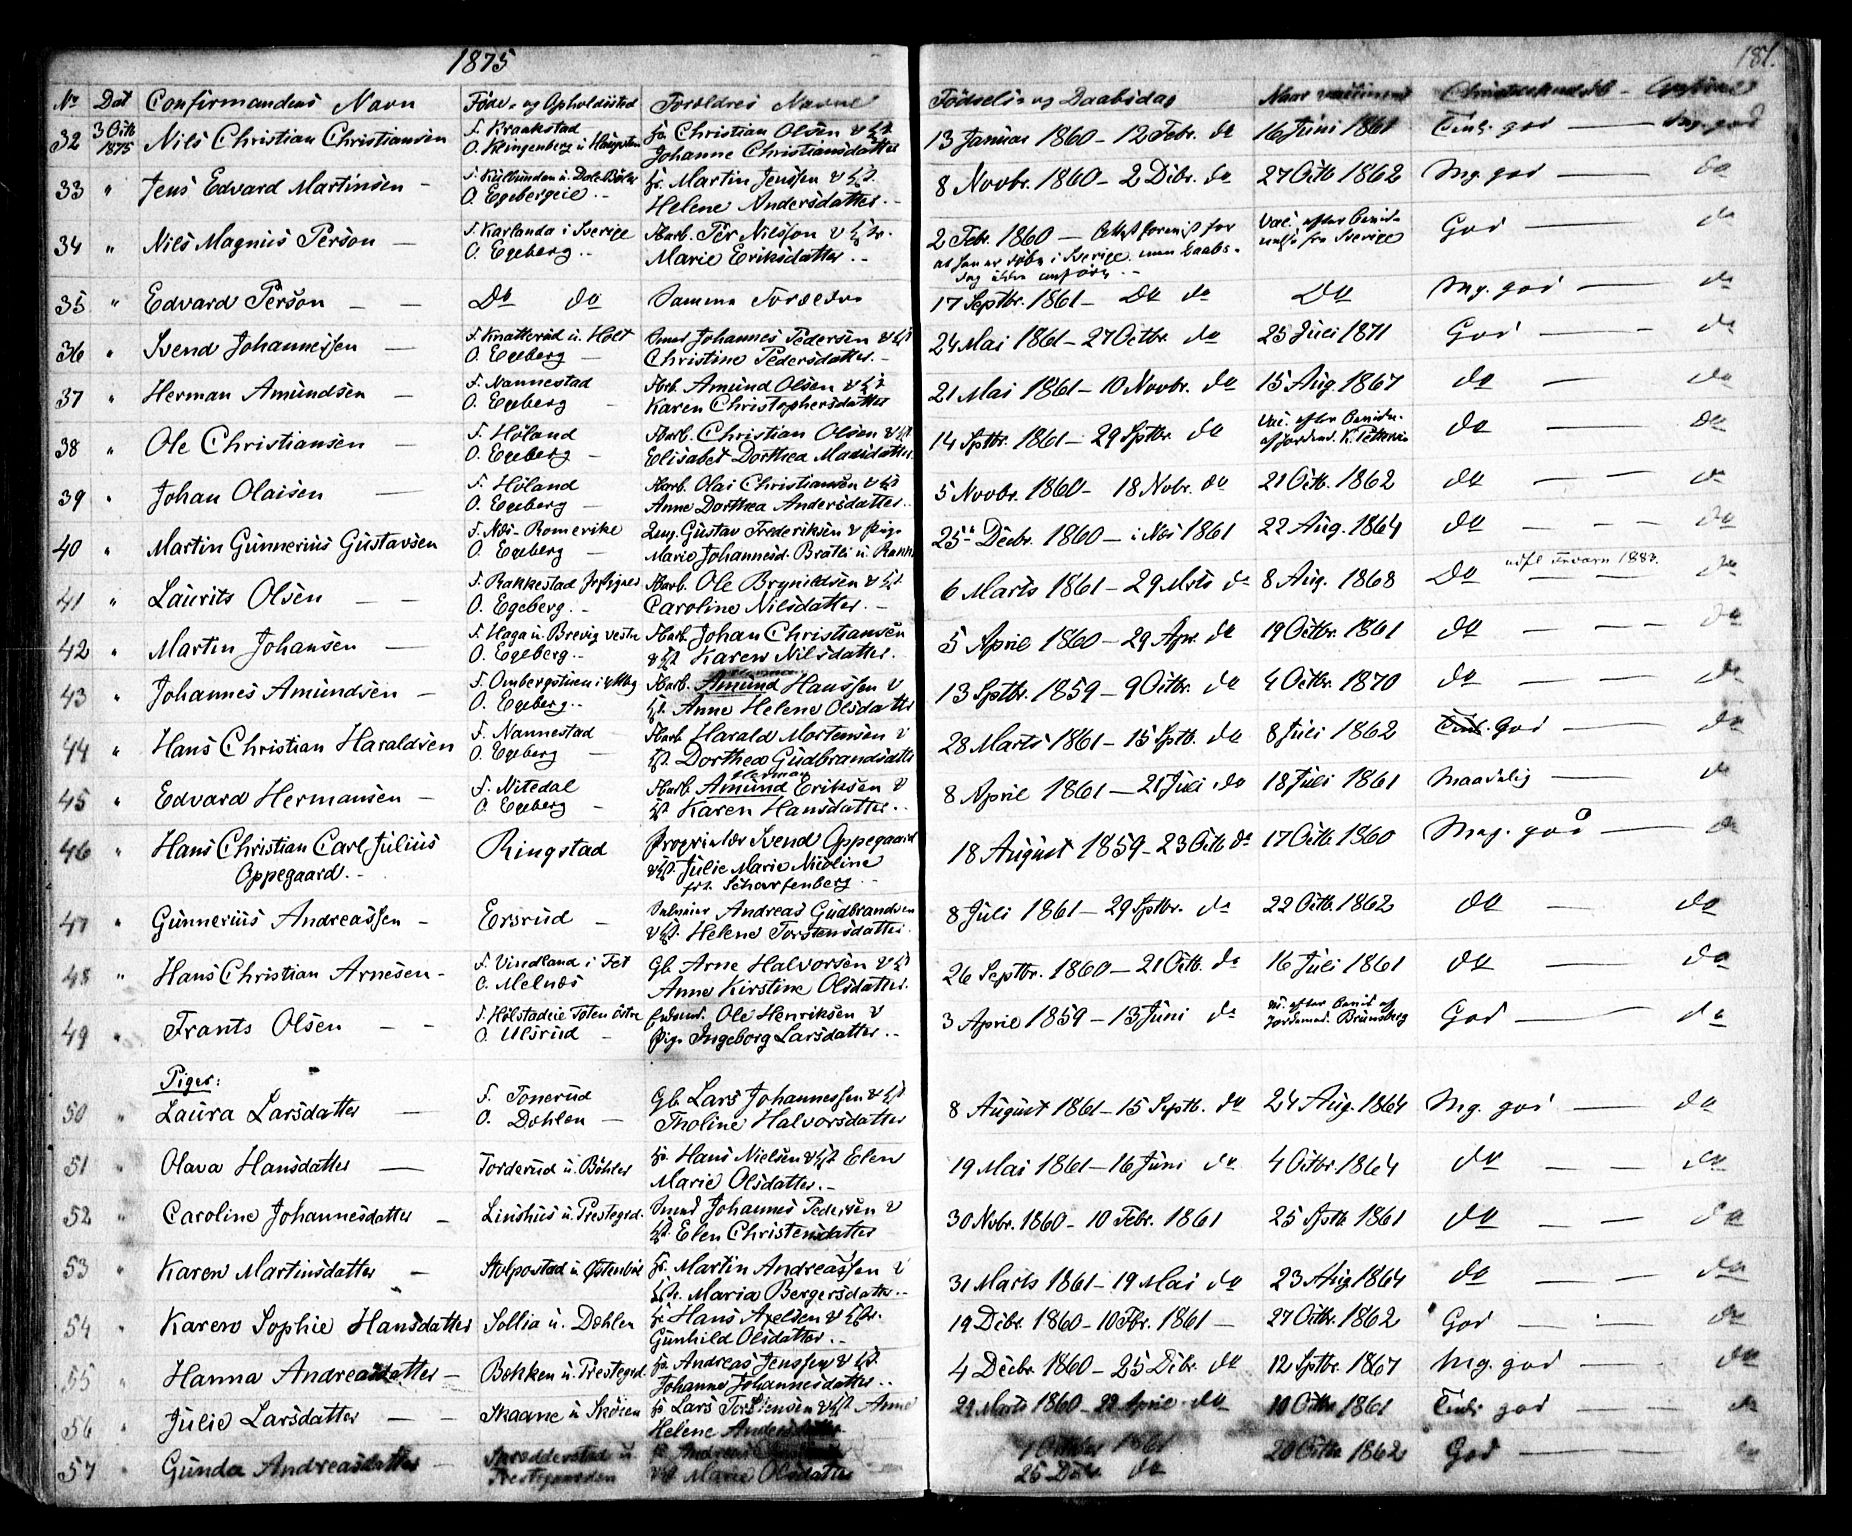 1875
181.
No Dat Confirmandens Navn Føde- og Opholdssted Forældres Navne Fødsels- og Daabsdag Naar vaccineret
32 3 Octb 1875 Nils Christian Christiansen F. Kraakstad Hr. Christian Olsen & Hst 13 Januar 1860 - 12 Febr. do 16 Juni 1861 Tml. god — Mg. god
O. Klingenberg u. Johanne Christiansdatter
33 " Jens Edvard Martinsen - Martin Jenssen & Hst. 8 Novbr. 1860 - 2 Dcbr. do 27 Octb 1862 Mg. god — do
O. Egebergeie.- Helene Andersdatter.-
34 " Nils Magnus Person — F. Karlanda i Sverige Arb. Per Nilsson & Hstr. 2 Febr. 1860 — God — do
O. Egeberg.. Marie Eriksdatter.-
35 " Edvard Person — — Do do Samme Forældre 17 Septbr. 1861 - Do do Do Mg. god — do
36 " Svend Johannessen — F. Knatterud u. Holt Smed Johannes Pedersen & Hst 24 Mai 1861 - 27 Octbr. do 25 Juli 1871 God — do
O. Egeberg — Christine Pedersdatter.-
37 " Herman Amundsen — F. Nannestad Arb. Amund Olsen & Hst 21 Mai 1861 - 10 Novbr. do 15 Aug. 1867 do — do
O. Egeberg Karen Christophersdatter
38 " Ole Christiansen — F. Høland Arb. Christian Olsen & Hst 14 Sptbr. 1861 - 29 Sptbr. do do — do
O. Egeberg - Elisabet Dorthea Madsdatter
39 " Johan Olaisen — F. Høland Arb. Olai Christiansen & Hst 5 Novbr. 1860 - 18 Nvbr. do 21 Octb. 1862 do — do
O. Egeberg - Anne Dorthea Andersdatter..
40 " Martin Gunnerius Gustavsen F. Næs - Romerike Ung. Gustav Frederiksen & Pige 25 Decbr. 1860 - i Næs 1861 22 Aug. 1864 do — do
O. Egeberg — Marie Johannesd. Bråtei u.
1883.
41 " Laurits Olsen — — F. Rakkestad Arb. Ole Brynildsen & Hst 6 Marts 1861 - 29 Mrts do 8 Aug. 1868 Do do
O. Egeberg.- Caroline Nilsdatter.-
42 " Martin Johansen — F. Haga u. Brevig vestre Arb. Johan Christiansen 5 April 1860 - 29 Apr. do 19 Octbr. 1861 do — do
O. Egeberg.- & Hst Karen Nilsdatter.
43 " Johannes Amundsen — Arb. Amund Hanssen & 13 Sptbr. 1859 - 9 Octbr. do 4 Octbr. 1870 do — do
O. Egeberg.. Hst. Anne Helene Olsdatter
44 " Hans Christian Haraldsen F. Nannestad — Arb Harald Mortensen & 28 Marts 1861 - 15 Sptb. do 8 Juli 1862 Tml. God — do
O. Egeberg — Hst. Dorthea Gudbrandsdatter
Herman
45 " Edvard Hermansen — F. Nitedal Arb Amund Eriksen & 8 April 1861 — 21 Juli do 18 Juli 1861 Maadelig — do
O. Egeberg - Hst Karen Hansdatter..
46 " Hans Christian Carl Julius Ringstad Proprietær Svend Oppegaard 18 August 1859 - 23 Octb do 17 Octb 1860 Meg. god — do
Oppegaard.- & Hst. Julie Marie Nicoline
fd. Scharfenberg.-
47 " Gunnerius Andreassen - Eersrud — Andreas Gudbrandsen 8 Juli 1861 - 29 Sptbr. do 22 Octb. 1862 do — do
& Hst. Helene Torstensdatter.
48 " Hans Christian Arnesen - F. Vindland i Fet Gb. Arne Halvorsen & Hst 26 Septbr. 1860 - 21 Octb. do 16 Juli 1861 do — do
O. Melnæs Anne Kirstine Olsdatter.
49 " Frants Olsen — - F. Hølstadeie Toten østre Ole Henriksen & 3 April 1859 - 13 Juni do Jordemod. Brunsberg God — do
O. Ulsrud - Pige Ingeborg Larsdatter..
Piger:
50 " Laura Larsdatter — F. Tonerud Gb. Lars Johannessen & Hst 8 August 1861 - 15 Septb. do 24 Aug. 1864 Mg. god — do
O. Døhlen — Tholine Halvorsdatter
51 " Olava Hansdatter — Torderud u. Bøhler Hr. Hans Nielsen & Hst Elen 19 Mai 1861 - 16 Juni do 4 Octbr. 1864 do — do
Marie Olsdatter.-
52 " Caroline Johannesdatter - Linshus u. Prestegrd. Smed Johannes Pedersen & 30 Nvbr. 1860 - 10 Febr. 1861 25 Sptb 1861 do — do
Hst. Elen Christensdatter
53 " Karen Martinsdatter — Stolpestad u. Østenbøl Hr. Martin Andreassen & 31 Marts 1861 - 19 Mai do 23 Aug 1864 do — do
Hst. Maria Bergersdatter..
54 " Karen Sophie Hansdatter Sollia u. Døhlen Hr Hans Axelsen & Hstr. 19 Dcbr. 1860 - 10 Fbr. 1861 — 27 Octbr. 1862 God — do
Gunhild Olsdatter.-
55 " Hanna Andreasdatter - Bekken u. Prestegrd. Hr. Andreas Jenssen & Hst. 4 Decbr. 1860 - 25 Dcbr. do 12 Sptbr. 1867 Mg. god — do
Johanne Johannesdatter..
56 " Julie Larsdatter — - Skaane u Skøien Hr Lars Torstensen & Hst Anne 21 Marts 1860 - 22 April do 10 Octbr 1861 Tml. god — do
Helene Andersdatter
57 " Gunda Andreasdatter - Skrædderstad u Hr Andreas 1 Octbr 1861 20 Octbr 1862 God — do
Prestegaarden & Hst Marie Olsdatter 25 Dcbr do